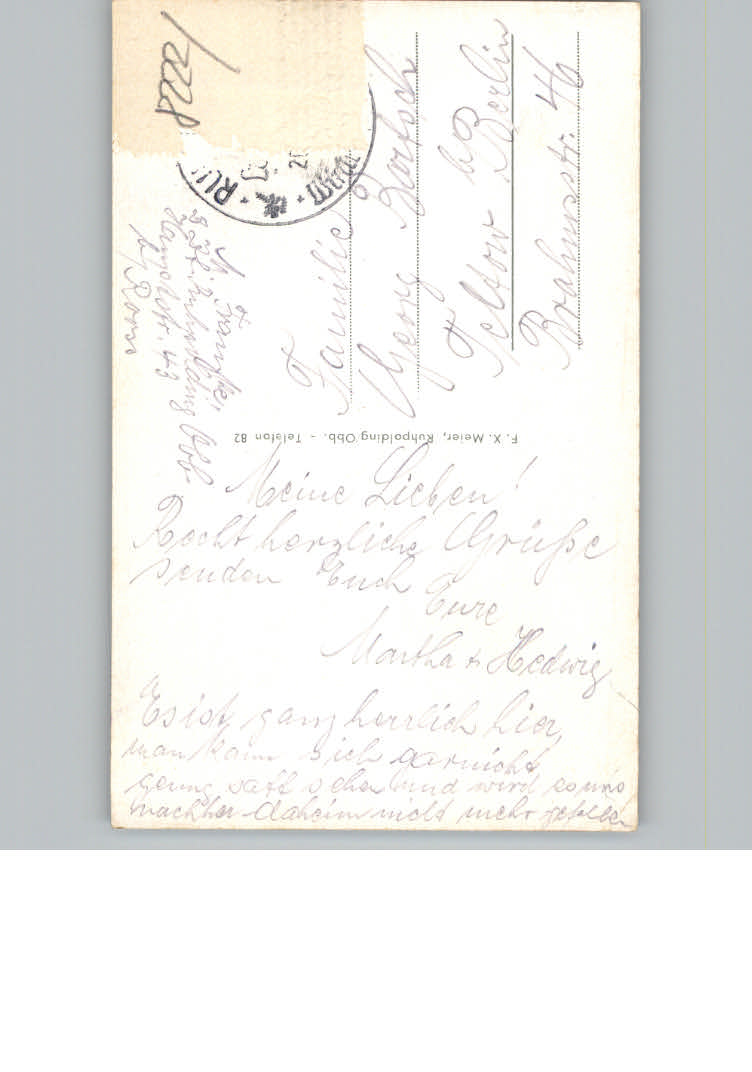 1228
RU
Familie
Georg
Teltow b. Berlin
Brahmsstr. 46
Ruhpolding Obb.
F. X. Meier, Ruhpolding Obb. - Telefon 82
Meine Lieben!
Recht herzliche Grüße
senden Euch
Eure
Martha + Hedwig
Es ist ganz herrlich hier,
man kann sich garnicht
genug satt sehen und wird es uns
nachher daheim nicht mehr gefallen